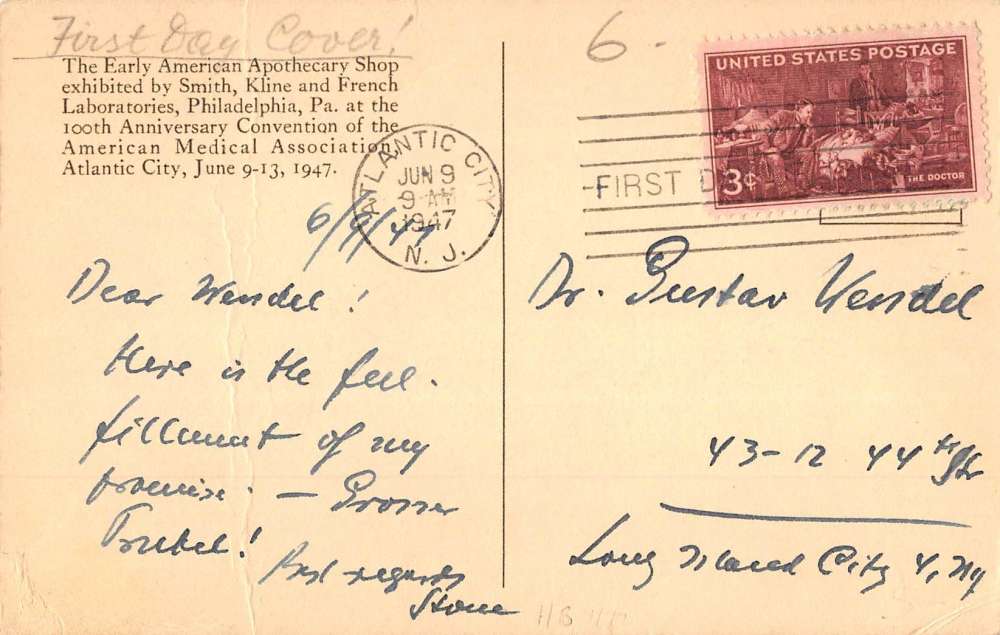 First Day Cover!
The Early American Apothecary Shop
exhibited by Smith, Kline and French
Laboratories, Philadelphia, Pa. at the
100th Anniversary Convention of the
American Medical Association,
Atlantic City, June 9-13, 1947.
6 -
UNITED STATES POSTAGE
3¢
THE DOCTOR
FIRST D
ATLANTIC CITY
JUN 9
9-AM
1947
N. J.
6/9/47
Dear Wendel!
Here is the full-
fillment of my
promise. — Grosser
Trubel!
Best regards
Stone
Dr. Gustav Wendel
43-12 44th Str
Long Island City 4, NY